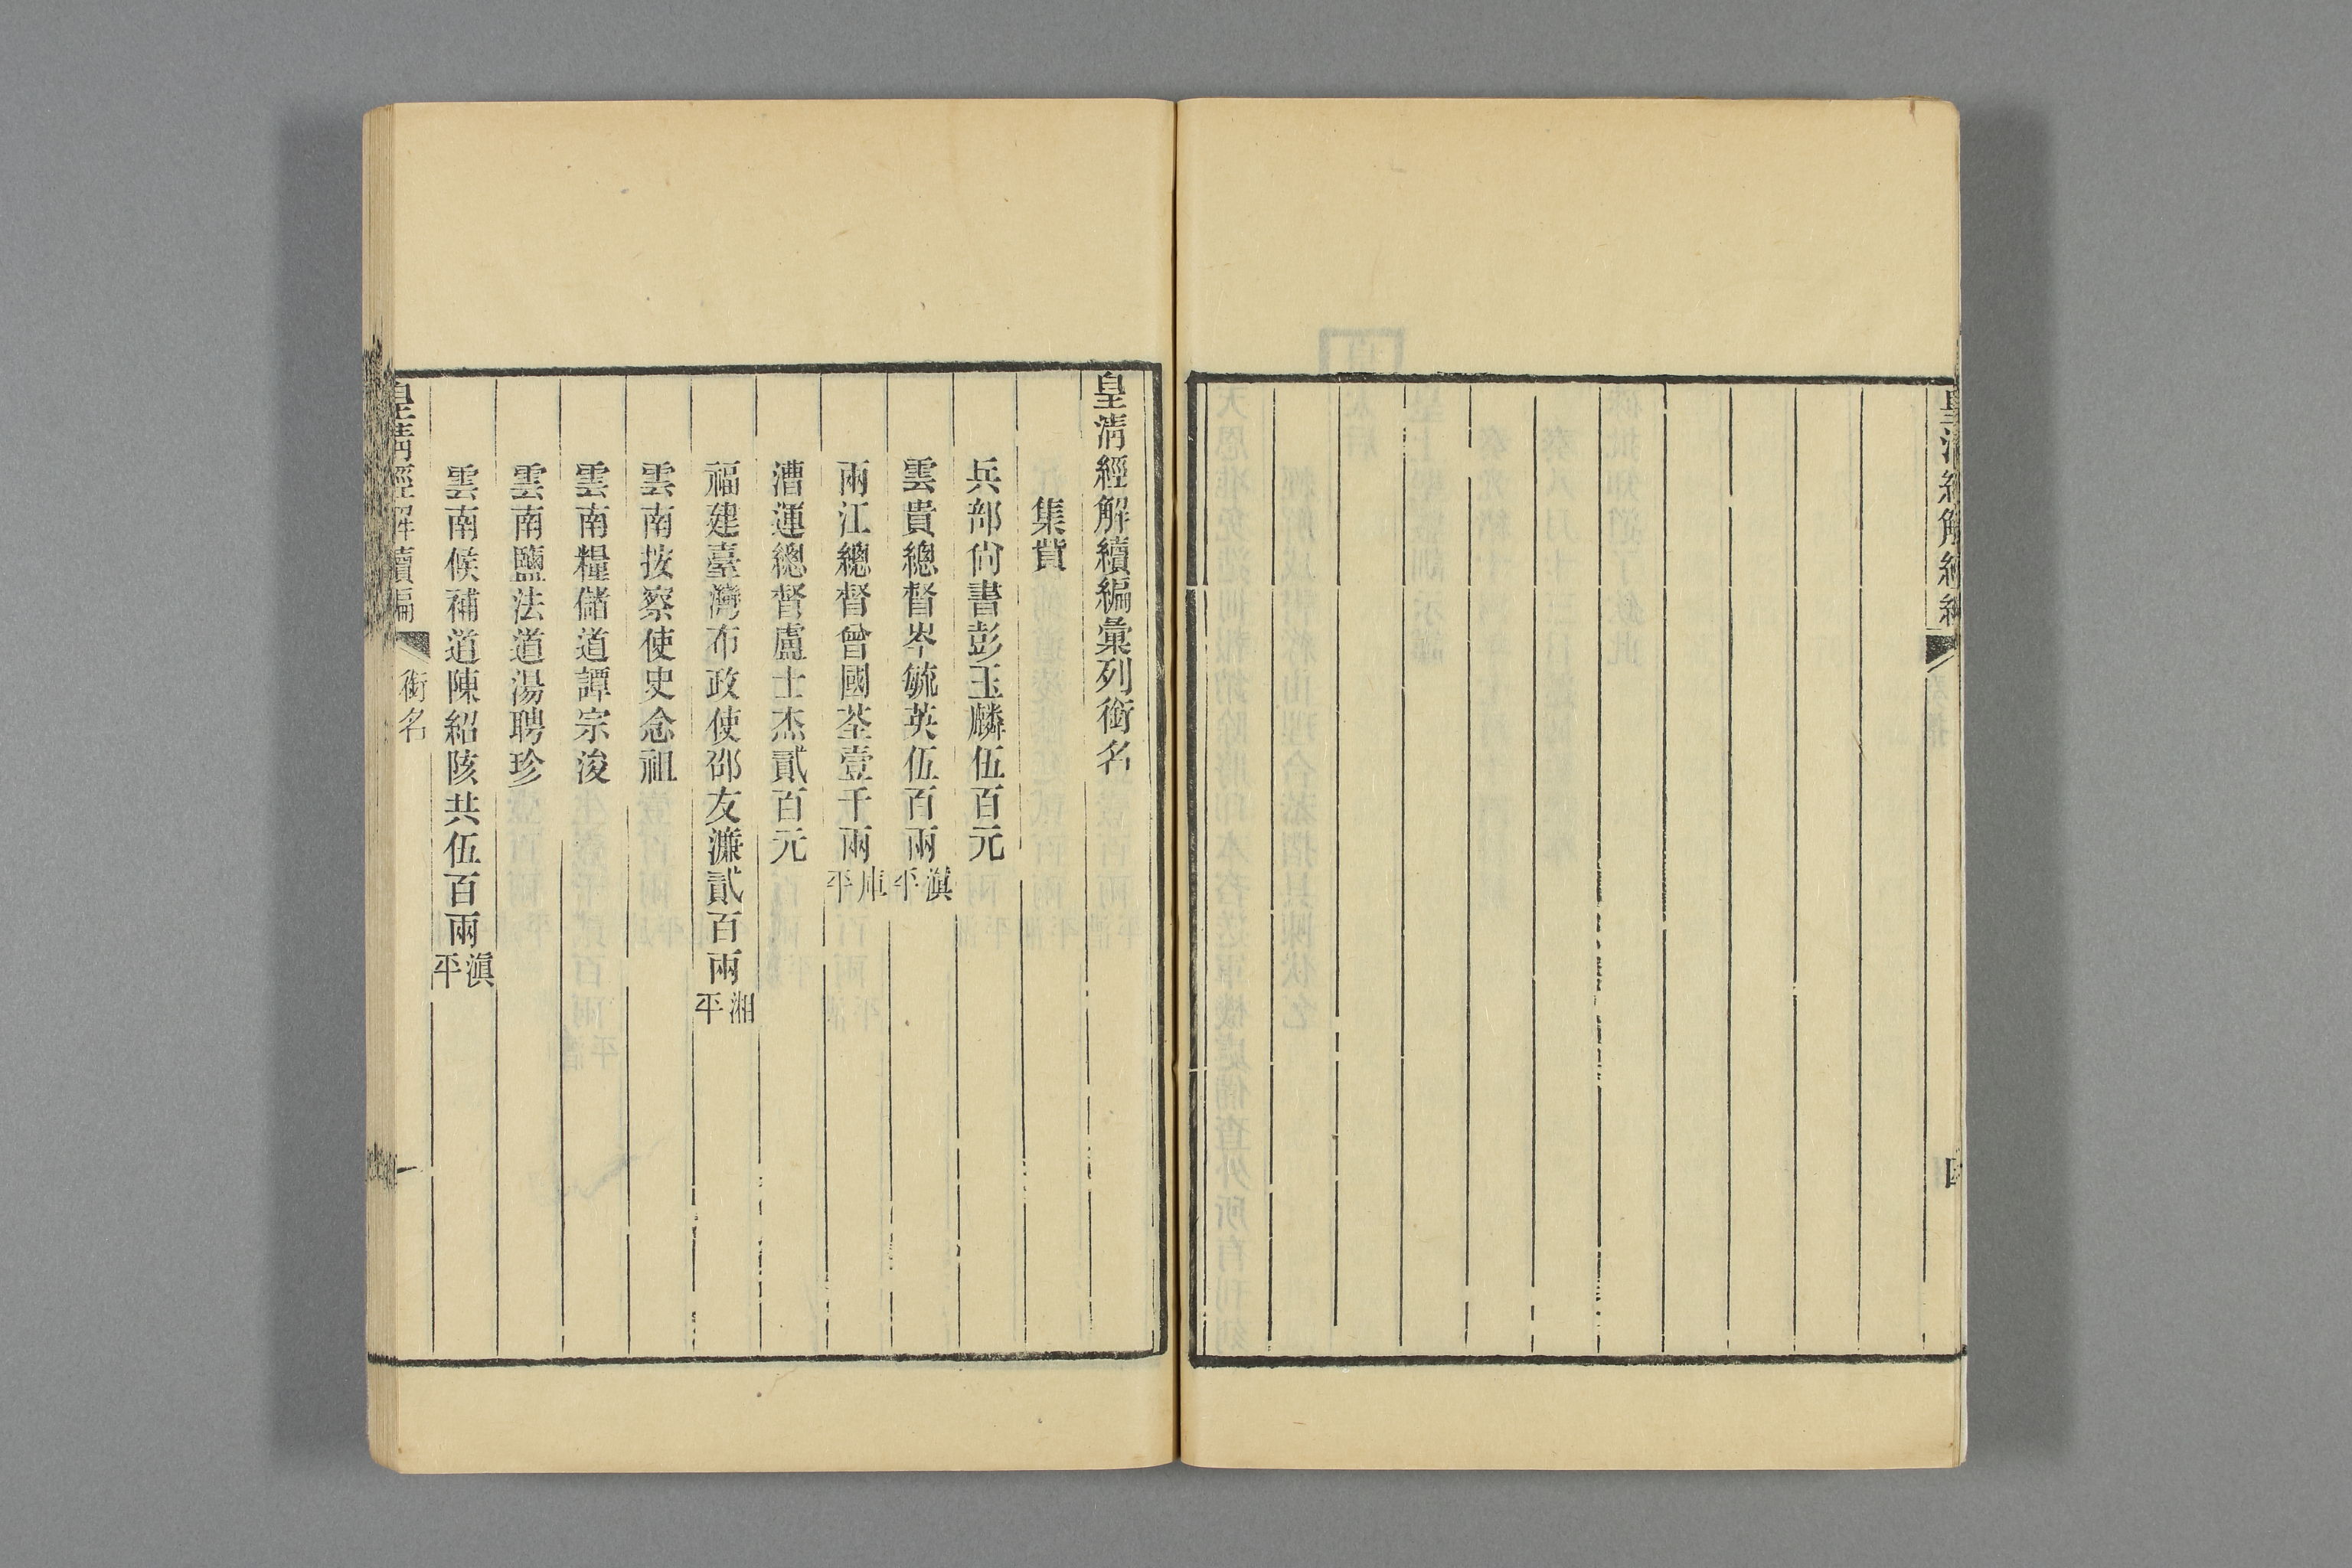 皇清經解續編
四
皇清經解續編彙列銜名
集貲
兵部尙書彭玉麟伍百元
雲貴總督岑毓英伍百兩滇平
兩江總督曾國荃壹千兩庫平
漕運總督盧士杰貳百元
福建臺灣布政使邵友濂貳百兩湘平
雲南按察使史念祖
雲南糧儲道譚宗浚
雲南鹽法道湯聘珍
雲南候補道陳紹陔共伍百兩滇平
皇清經解續編
銜名
一